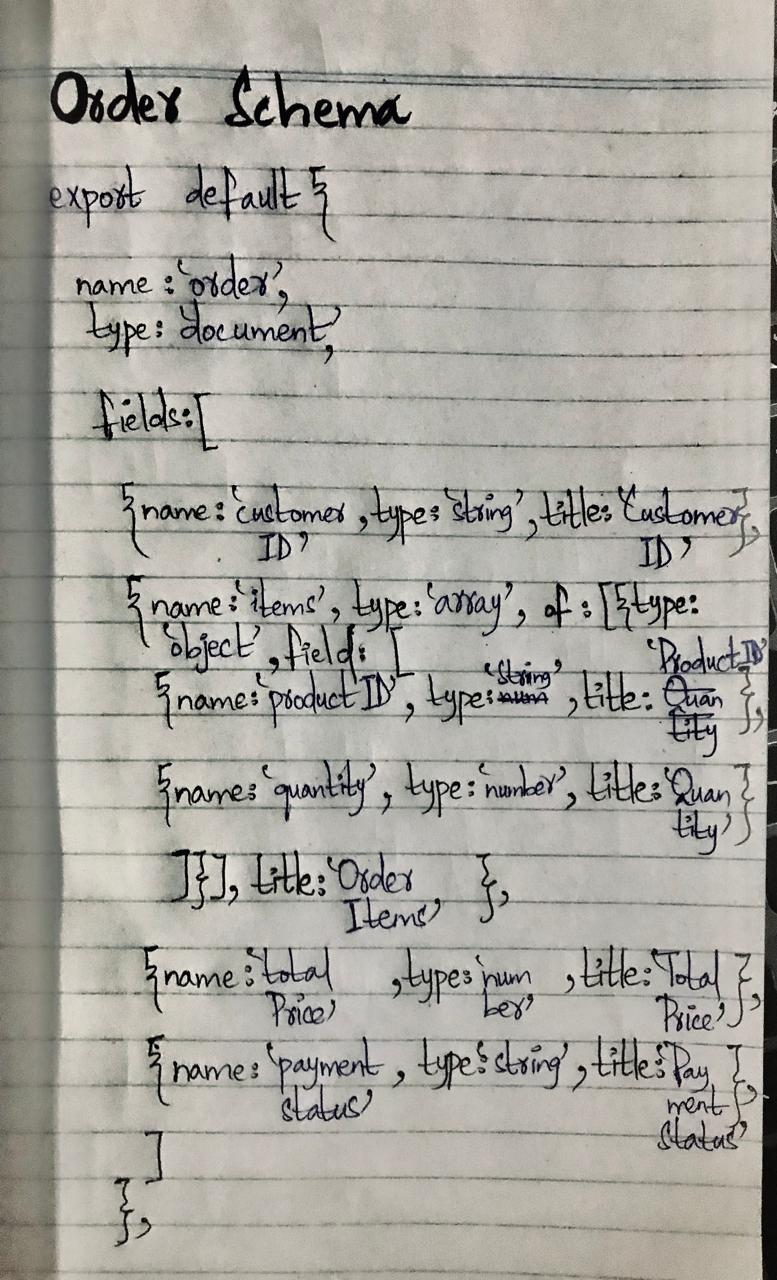 Order Schema
export default {
name : 'order',
type: 'document',
fields:[
{name: 'customer ID', type: 'string', title: 'Customer ID'},
{name: 'items', type: 'array', of : [{type:
'object', field: [
{name: 'product ID', type: 'String', title: 'Product ID'},
{name: 'quantity', type: 'number', title: 'Quantity'}
]}], title: 'Order Items' },
{name: 'total Price', type: 'number', title: 'Total Price'},
{name: 'payment status', type: 'string', title: 'Payment Status'},
]
},